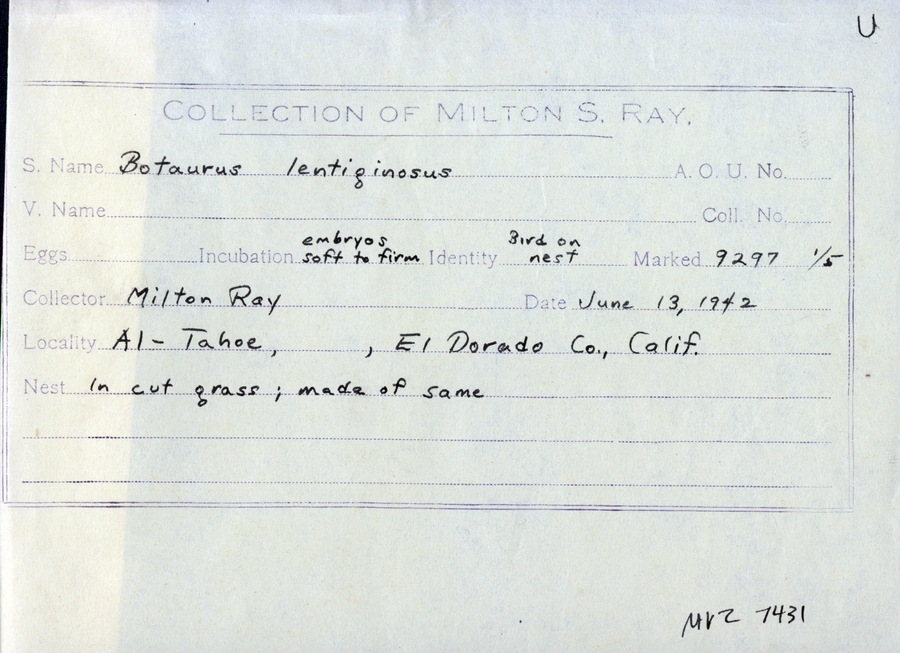 U
COLLECTION OF MILTON S. RAY.
S. Name Botaurus lentiginosus A. O. U. No.
V. Name Coll. No.
Eggs Incubation embryos soft to firm Identity Bird on nest Marked 9297 1/5
Collector Milton Ray Date June 13, 1942
Locality Al-Tahoe, , El Dorado Co., Calif.
Nest In cut grass; made of same
MVZ 7431